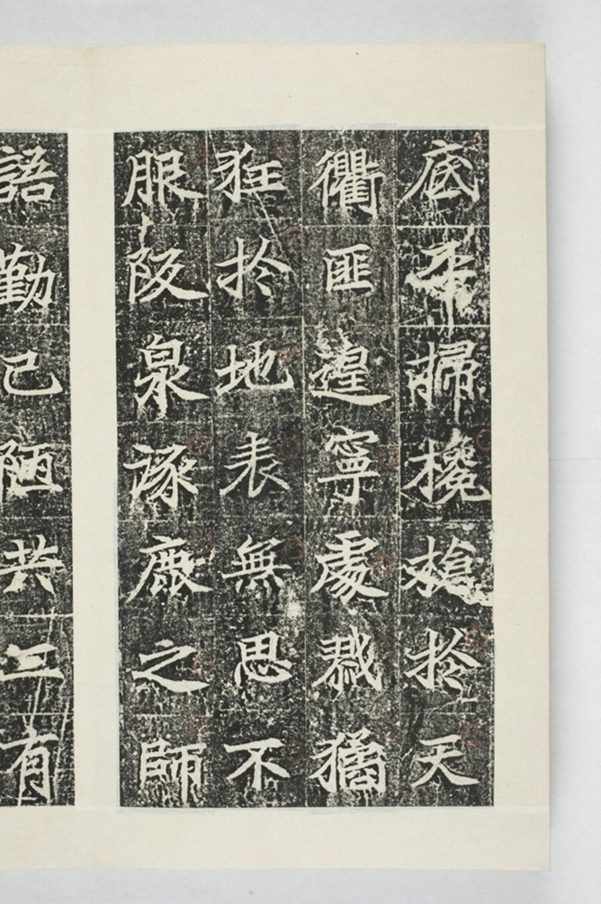 底平掃欃槍於天
衢匪遑寧處戮獝
狂於地表無思不
服阪泉涿鹿之師
語勤已陋共工有